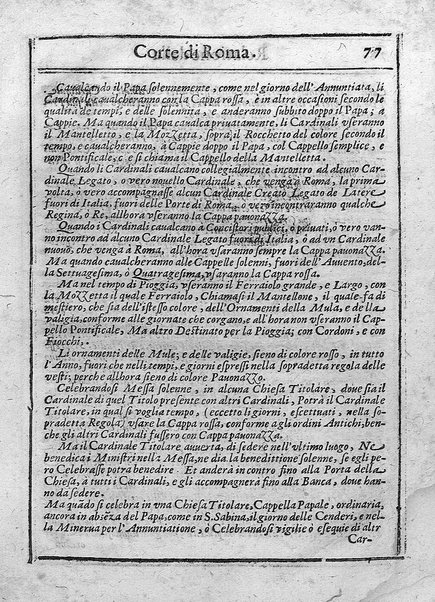 Corte di Roma. 77
Caualcando il Papa solennemente, come nel giorno dell'Annuntiata, li
Cardinali caualcheranno con la Cappa rossa, e in altre occasioni secondo le
qualità de tempi, e delle solennità, e anderanno subbito doppo il Papa; a
Cappio. Ma quando il Papa caualca priuatamente, li Cardinali vseranno
il Mantelletto, e la Mozzetta, sopra, il Rocchetto del colore secondo il
tempo, e caualcheranno, a Cappie doppo il Papa, col Cappello semplice, e
non Pontificale, c e si chiama il Cappello della Mantelletta.
Quando li Cardinali caualcano collegialmente incontro ad alcuno Car-
dinale Legato, ò vero nouello Cardinale, che venga à Roma, la prima
volta, ò vero accompagnasse alcun Cardinale Creato Legato de Latere
fuori di Italia, fuori delle Porte di Roma, ò vero incontraranno qualche
Regina, ò Re, allhora vseranno la Cappa pauonazza.
Quando i Cardinali caualcano a Concistori publici, ò priuati, ò vero van-
no incontro ad alcuno Cardinale Legato fuori di Italia, ò ad vn Cardinale
nuouo, che venga à Roma, all'hora vseranno sempre la Cappa pauonazza.
Ma quando caualcheranno alle Cappelle solenni, fuori dell'Auuento, del-
la Settuagesima, ò Quatragesima, vsaranno la Cappa rossa.
Ma nel tempo di Pioggia, vseranno il Ferraiolo grande, e Largo, con
la Mozzetta il quale Ferraiolo, Chiamasi il Mantellone, il quale fa di
mestiero, che sia dell'istesso colore, dell'Ornamenti della Mula, e della
valigia, conforme alle giornate che corgano, e all'hora non vseranno il Cap-
pello Pontificale, Ma altro Destinato per la Pioggia; con Cordoni, e con
Fiocchi.
Li ornamenti delle Mule; e delle valigie, sieno di colore rosso, in tutto
l'Anno, fuori che nelli tempi, e giorni espressi nella sopradetta regola delle
vesti; perche allhora sieno di colore Pauonazzo.
Celebrandosi Messa solenne, in alcuna Chiesa Titolare, doue sia il
Cardinale di quel Titolo presente con altri Cardinali, Potrà il Cardinale
Titolare, in qual si voglia tempo, (eccetto li giorni, escettuati, nella so-
pradetta Regola) vsare la Cappa rossa, conforme agli ordini Antichi, ben-
che gli altri Cardinali fussero con Cappa pauonazza.
Ma il Cardinale Titolare auuerta, di sedere nell'vltimo luogo, Ne
benedica i Ministri nella Messa, ne dia la benedittione solenne, se egli pe-
ro Celebrasse potra benedire. Et anderà incontro fino alla Porta della
Chiesa, à tutti i Cardinali, e gli accompagnerà fino alla Banca, doue han-
no da sedere.
Ma quãdo si celebra in vna Chiesa Titolare, Cappella Papale, ordinaria,
ancora in absẽza del Papa, come in S. Sabina, il giorno delle Cenderi, e nel-
la Minerua per l'Annuntiatione, ò Celebrandosi vigilie ò esequie di altr
Car-